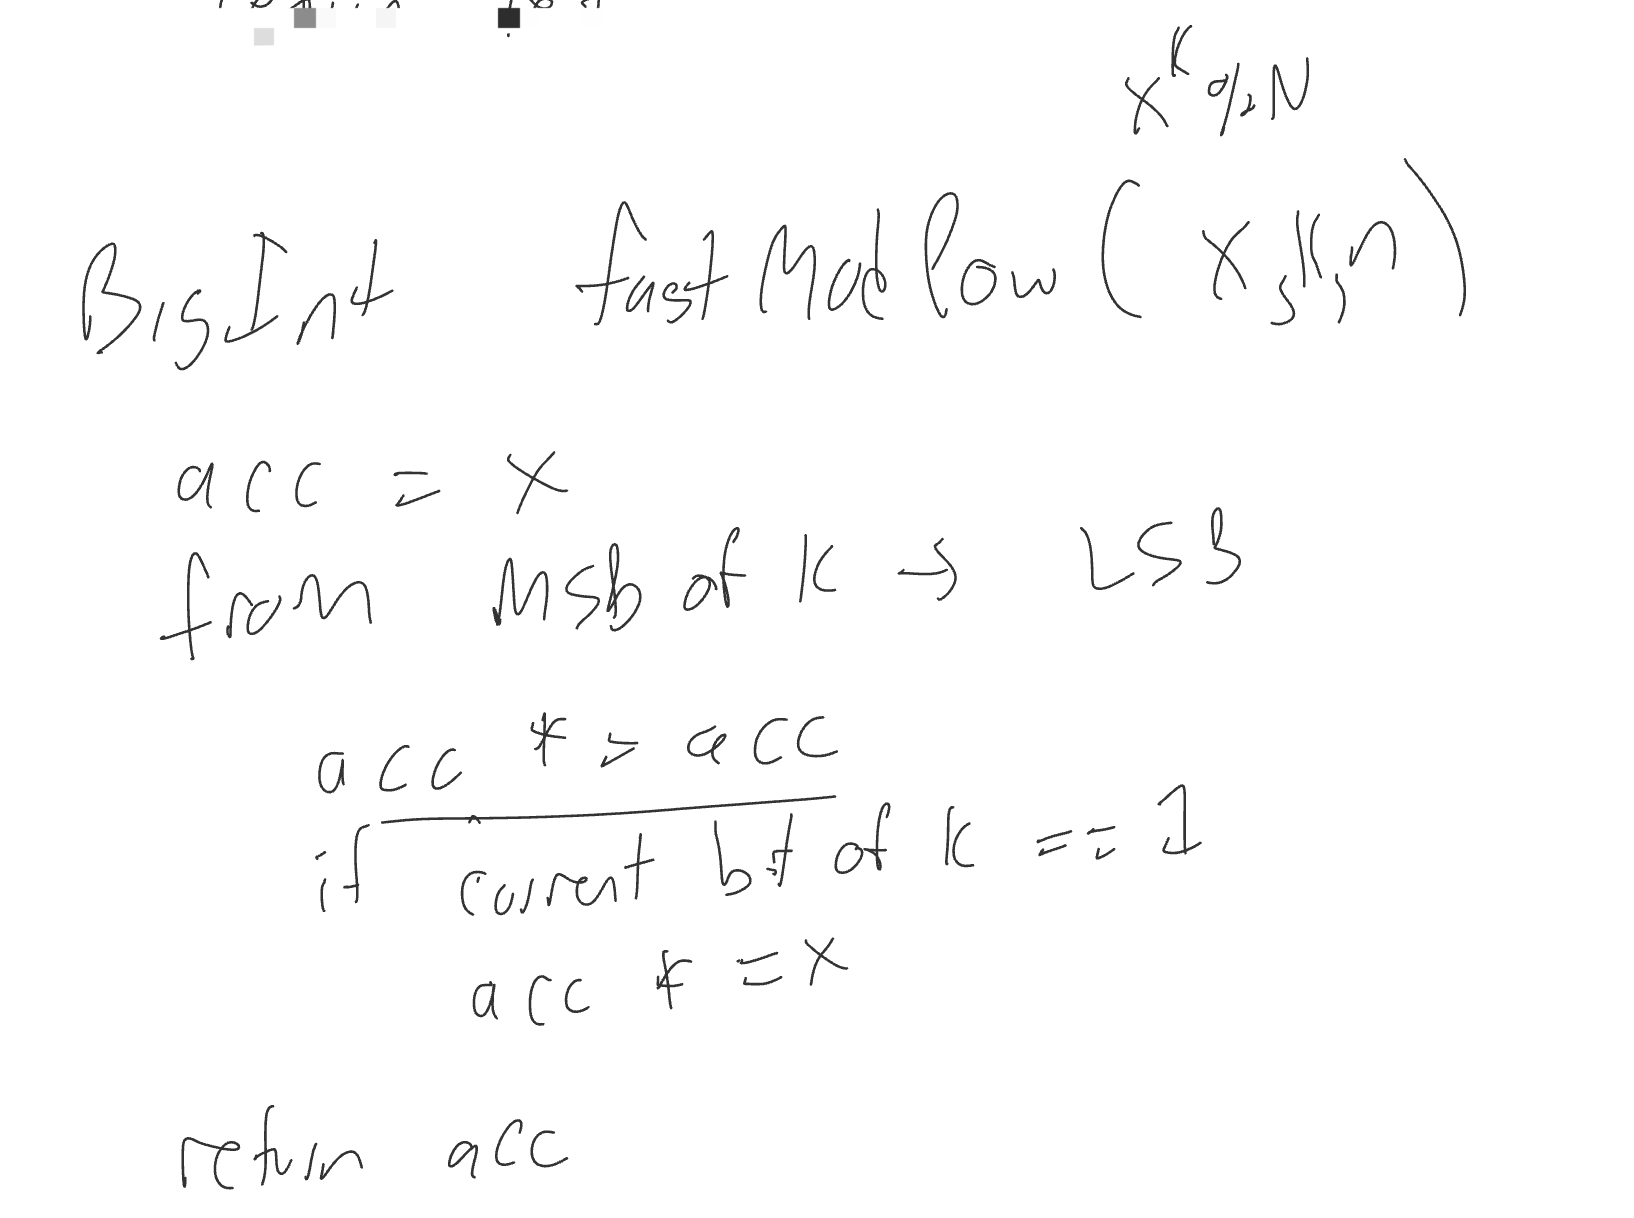 x^k % N
BigInt fastModPow(x,k,n)
acc = x
from Msb of k → LSB
acc *= acc
if current bit of k == 1
acc *= x
return acc